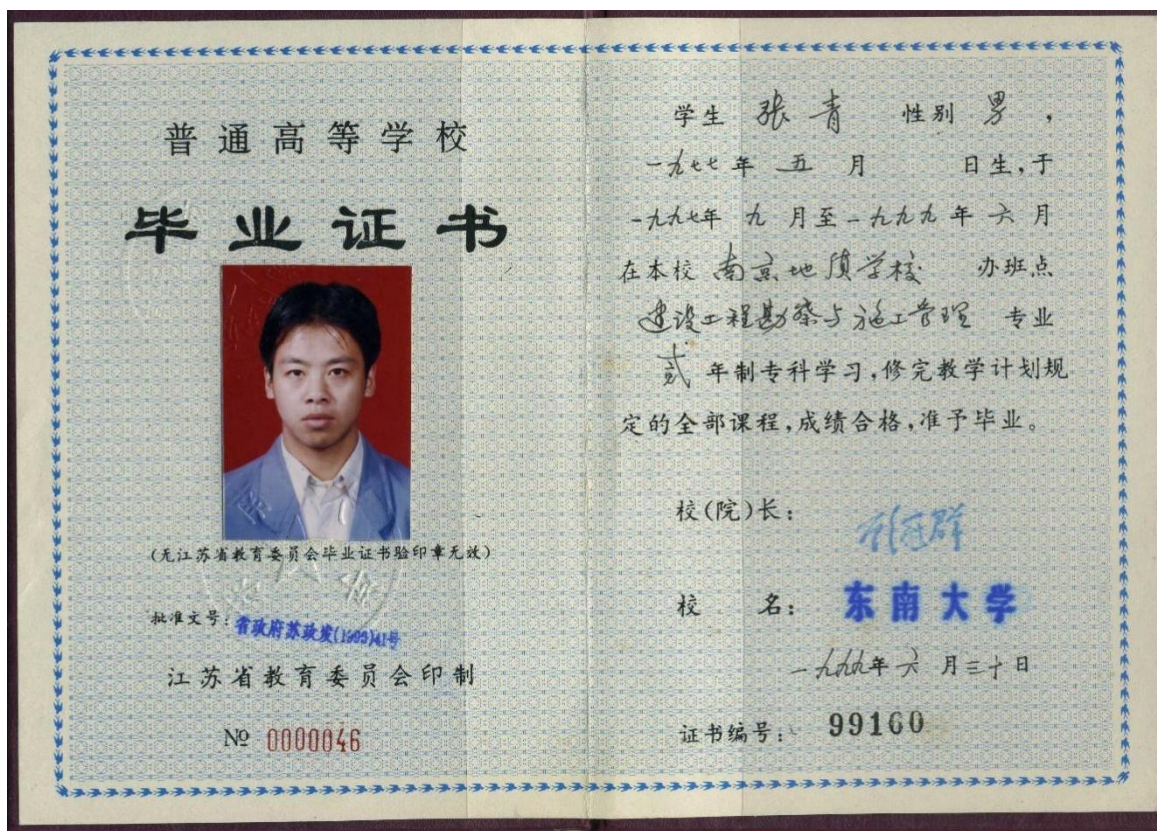 普通高等学校
毕业证书
(无江苏省教育委员会毕业证书验印章无效)
批准文号：省政府苏政发(1993)41号
江苏省教育委员会印制
№ 0000046
学生 张青 性别 男，
一九七七年 五 月 日生，于
一九九七年 九 月至一九九九年 六 月
在本校 南京地质学校 办班点
建设工程勘察与施工管理 专业
贰 年制专科学习，修完教学计划规
定的全部课程，成绩合格，准予毕业。
校(院)长：
校 名：东南大学
一九九九年 六 月三十日
证书编号：99160